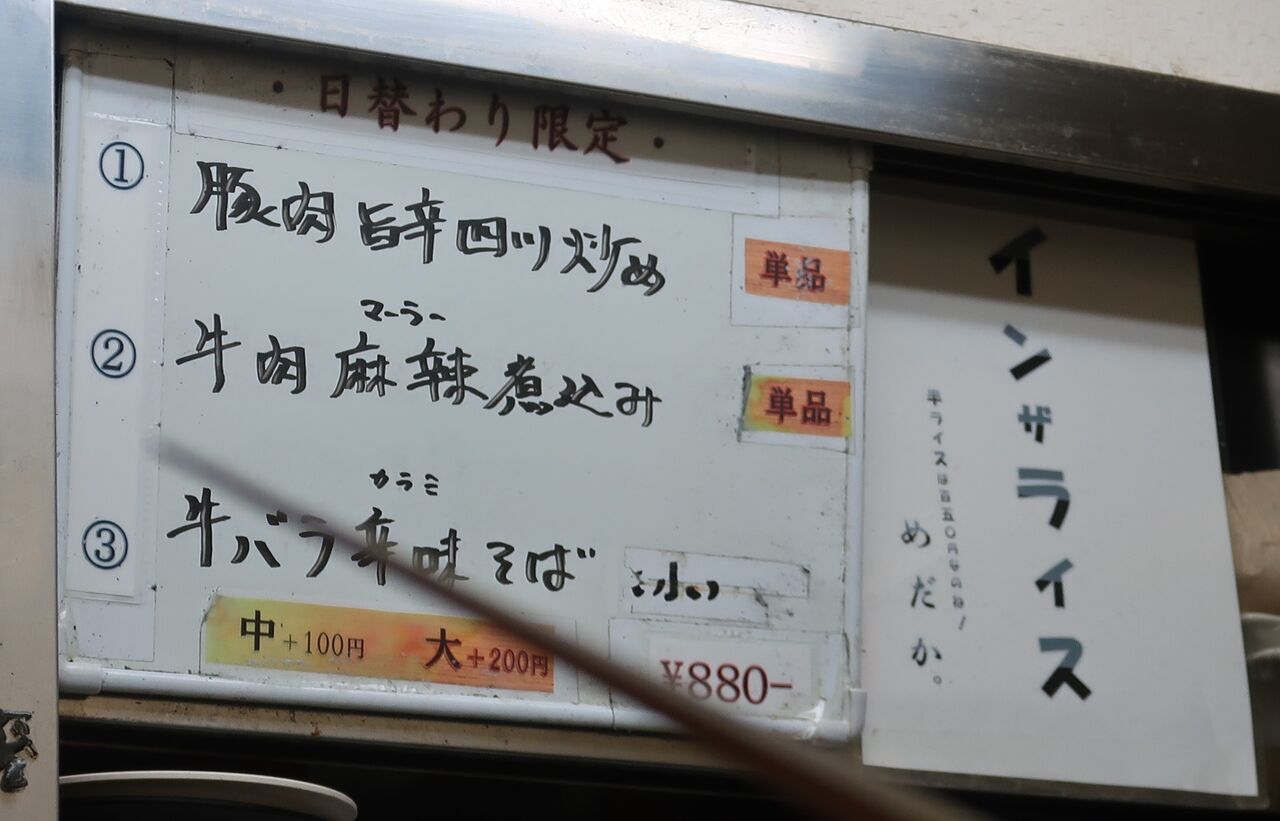 ・日替わり限定・
① 豚肉旨辛四川炒め 単品
マーラー
② 牛肉麻辣煮込み 単品
カラミ
③ 牛バラ辛味そば 小
中+100円 大+200円
¥880-
インザライス
半ライスは百五〇円なのね!
めだか。